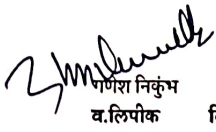 गणेश निकुंभ
व.लिपीक